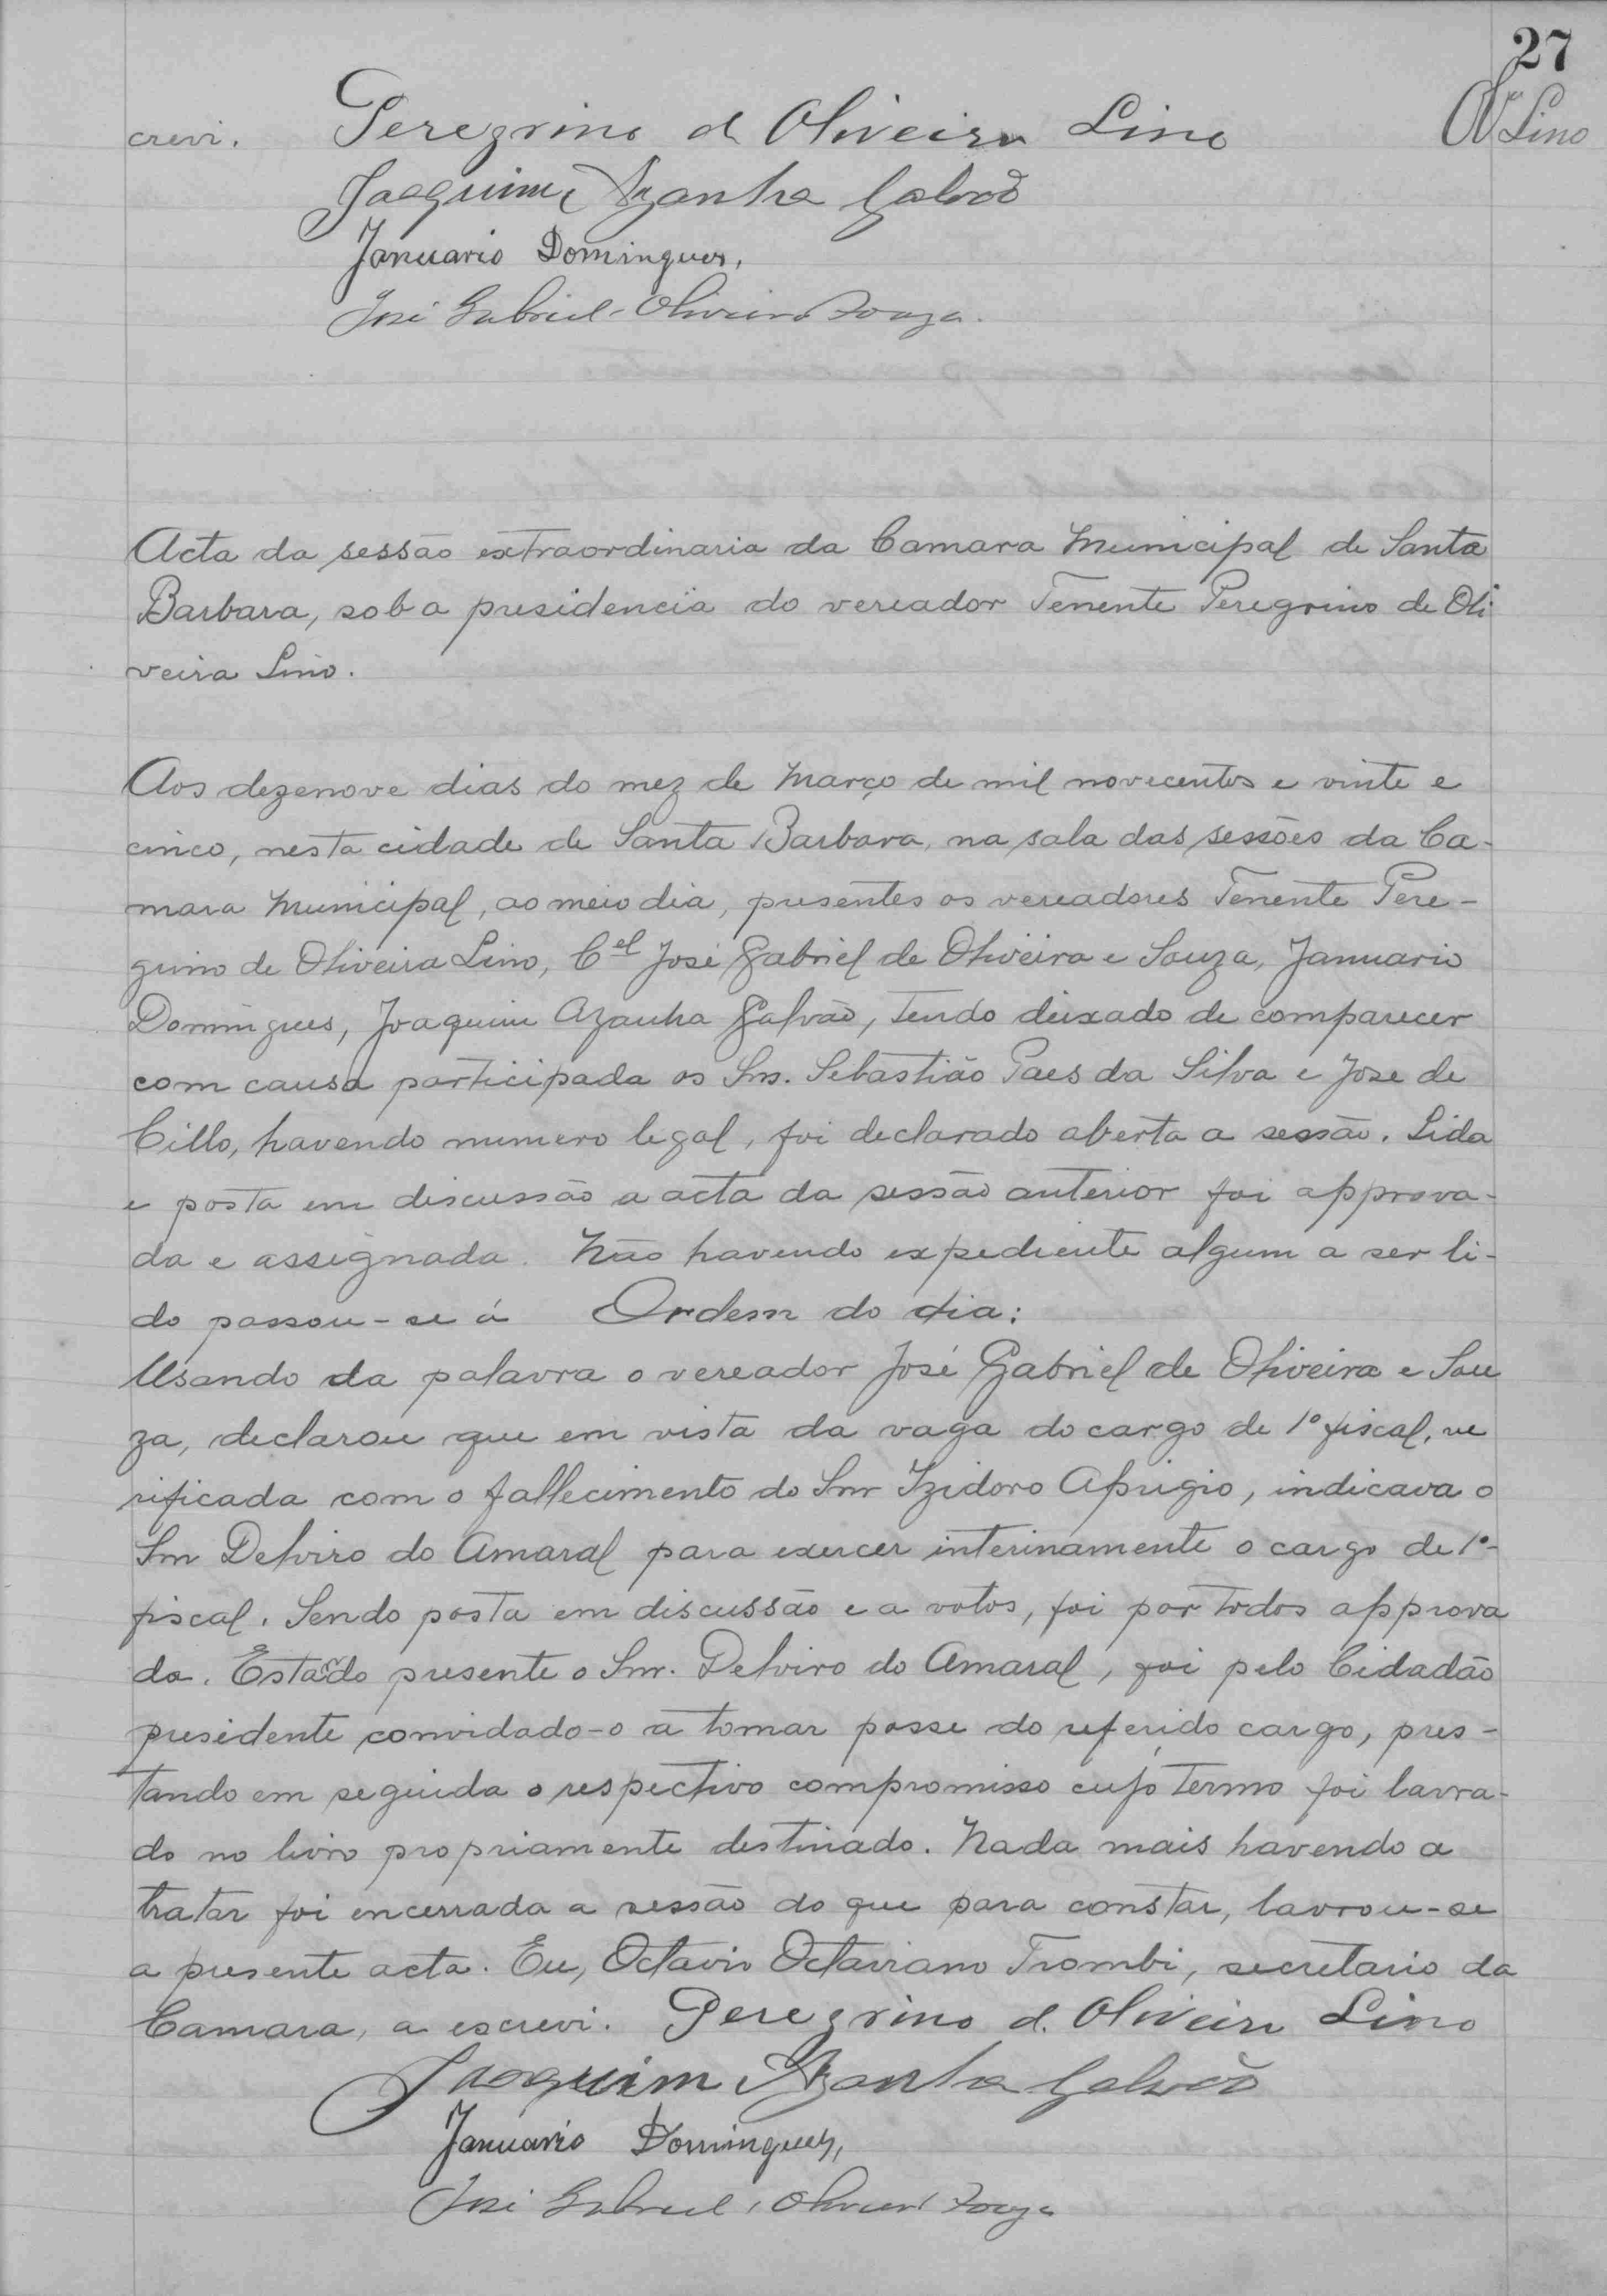 27
Lino
crevi. Peregrino d Oliveira Lino
Joaquim Azanha Galvão
Januario Domingues,
José Gabriel Oliveira Souza.
Acta da sessão extraordinaria da Camara Municipal de Santa
Barbara, sob a presidencia do vereador Tenente Peregrino de Oli
veira Lino.
Aos dezenove dias do mez de Março de mil novecentos e vinte e
cinco, nesta cidade de Santa Barbara, na sala das sessões da Ca-
mara Municipal, ao meio dia, presentes os vereadores Tenente Pere-
grino de Oliveira Lino, Cel José Gabriel de Oliveira e Souza, Januario
Domingues, Joaquim Azanha Galvão, tendo deixado de comparecer
com causa participada os Snrs. Sebastião Paes da Silva e Jose de
Cillo, havendo numero legal, foi declarado aberta a sessão. Lida
e posta em discussão a acta da sessão anterior foi approva-
da e assignada. Não havendo expediente algum a ser li-
do passou-se á Ordem do dia:
Usando da palavra o vereador José Gabriel de Oliveira e Sou
za, declarou que em vista da vaga do cargo de 1º fiscal, ve
rificada com o fallecimento do Snr Izidoro Aprigio, indicava o
Snr Delviro do Amaral para exercer interinamente o cargo de 1º
fiscal. Sendo posta em discussão e a votos, foi por todos approva
da. Estando presente o Snr. Delviro do Amaral, foi pelo Cidadão
presidente convidado-o a tomar posse do referido cargo, pres-
tando em seguida o respectivo compromisso cujo termo foi lavra-
do no livro propriamente destinado. Nada mais havendo a
tratar foi encerrada a sessão do que para constar, lavrou-se
a presente acta. Eu, Octavio Octaviano Trombi, secretario da
Camara, a escrevi. Peregrino d. Oliveira Lino
Joaquim Azanha Galvão
Januario Domingues,
José Gabriel Oliveira Souza